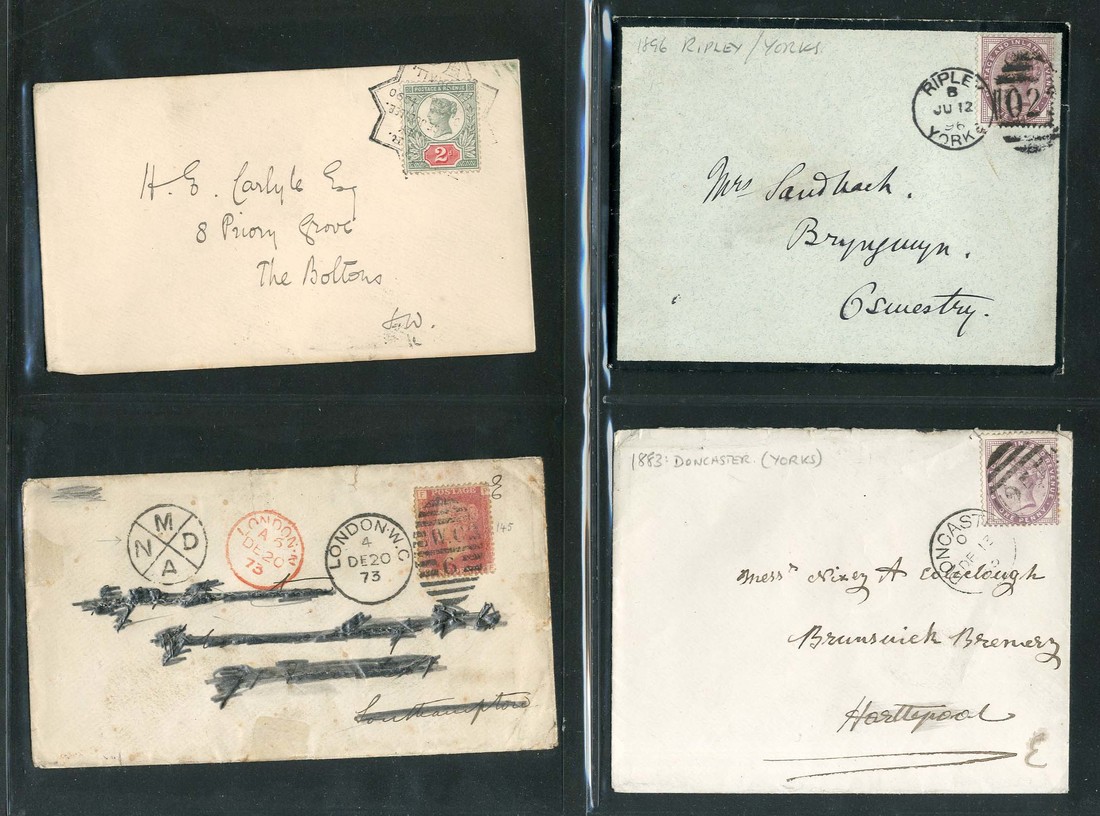 POSTAGE & REVENUE
2d
H. E. Carlyle Esq
8 Priory Grove
The Boltons
S.W.
1896 RIPLEY / YORKS
RIPLEY
B
JU 12
96
YORKS
02
Mrs Sandbach.
Bryngwyn.
Oswestry.
M
N D
A
LONDON
DE 20
73
LONDON. W.C
4
DE 20
73
POSTAGE
W.C
6
145
Southampton
1883: DONCASTER. (YORKS)
ONE PENNY
DONCASTER
DE 13
Messrs Nixey & Coleclough
Brunswick Brewery
Hartlepool
E